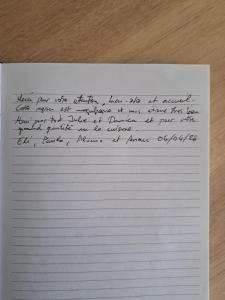 Merci pour votre attention, bien-être et accueil.
Cette région est magnifique et nous étions très bien
Merci pour tout Julie et Damien et pour votre
grand qualité en la cuisine.
Eli, Paula, et 06/04/26